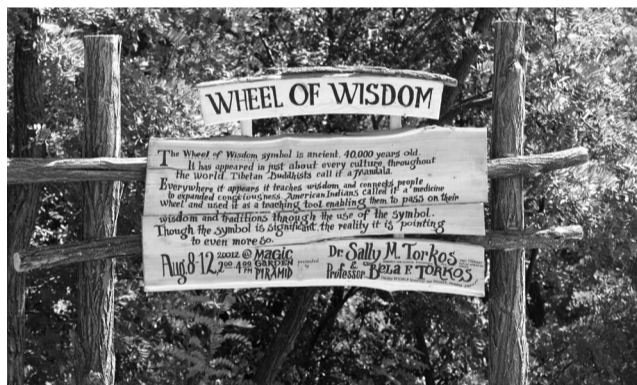 WHEEL OF WISDOM
The Wheel of Wisdom symbol is ancient, 40,000 years old.
It has appeared in just about every culture throughout
the world. Tibetan Buddhists call it a Mandala.
Everywhere it appears it teaches wisdom and connects people
to expanded consciousness. American Indians called it a medicine
wheel and used it as a teaching tool enabling them to pass on their
wisdom and traditions through the use of the symbol.
Though the symbol is significant, the reality it is pointing
to even more so.
Aug. 8-12, @ MAGIC GARDEN PIRAMID
2:00 4:00 PM
presented by
Dr. Sally M. Torkos
&
Professor Bela F. TORKOS